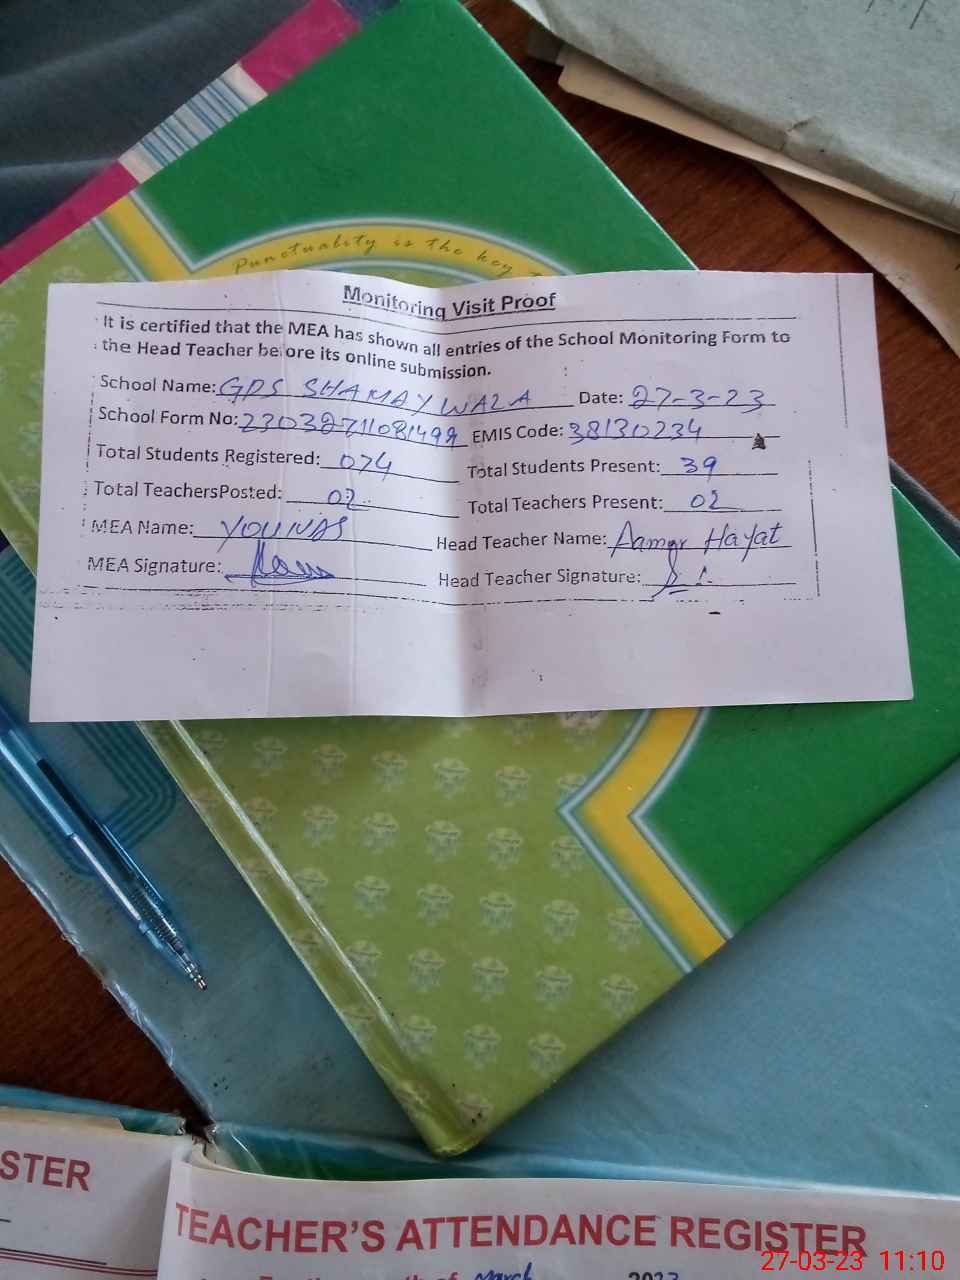 Punctuality is the key
Monitoring Visit Proof
It is certified that the MEA has shown all entries of the School Monitoring Form to
the Head Teacher before its online submission.
School Name: GPS SHAMAYWALA Date: 27-3-23
School Form No: EMIS Code: 38130234
Total Students Registered: 074 Total Students Present: 39
Total TeachersPosted: 02 Total Teachers Present: 02
MEA Name: YOUNAS Head Teacher Name: Aamar Hayat
MEA Signature: Head Teacher Signature:
STER
TEACHER'S ATTENDANCE REGISTER
March 2023
27-03-23 11:10